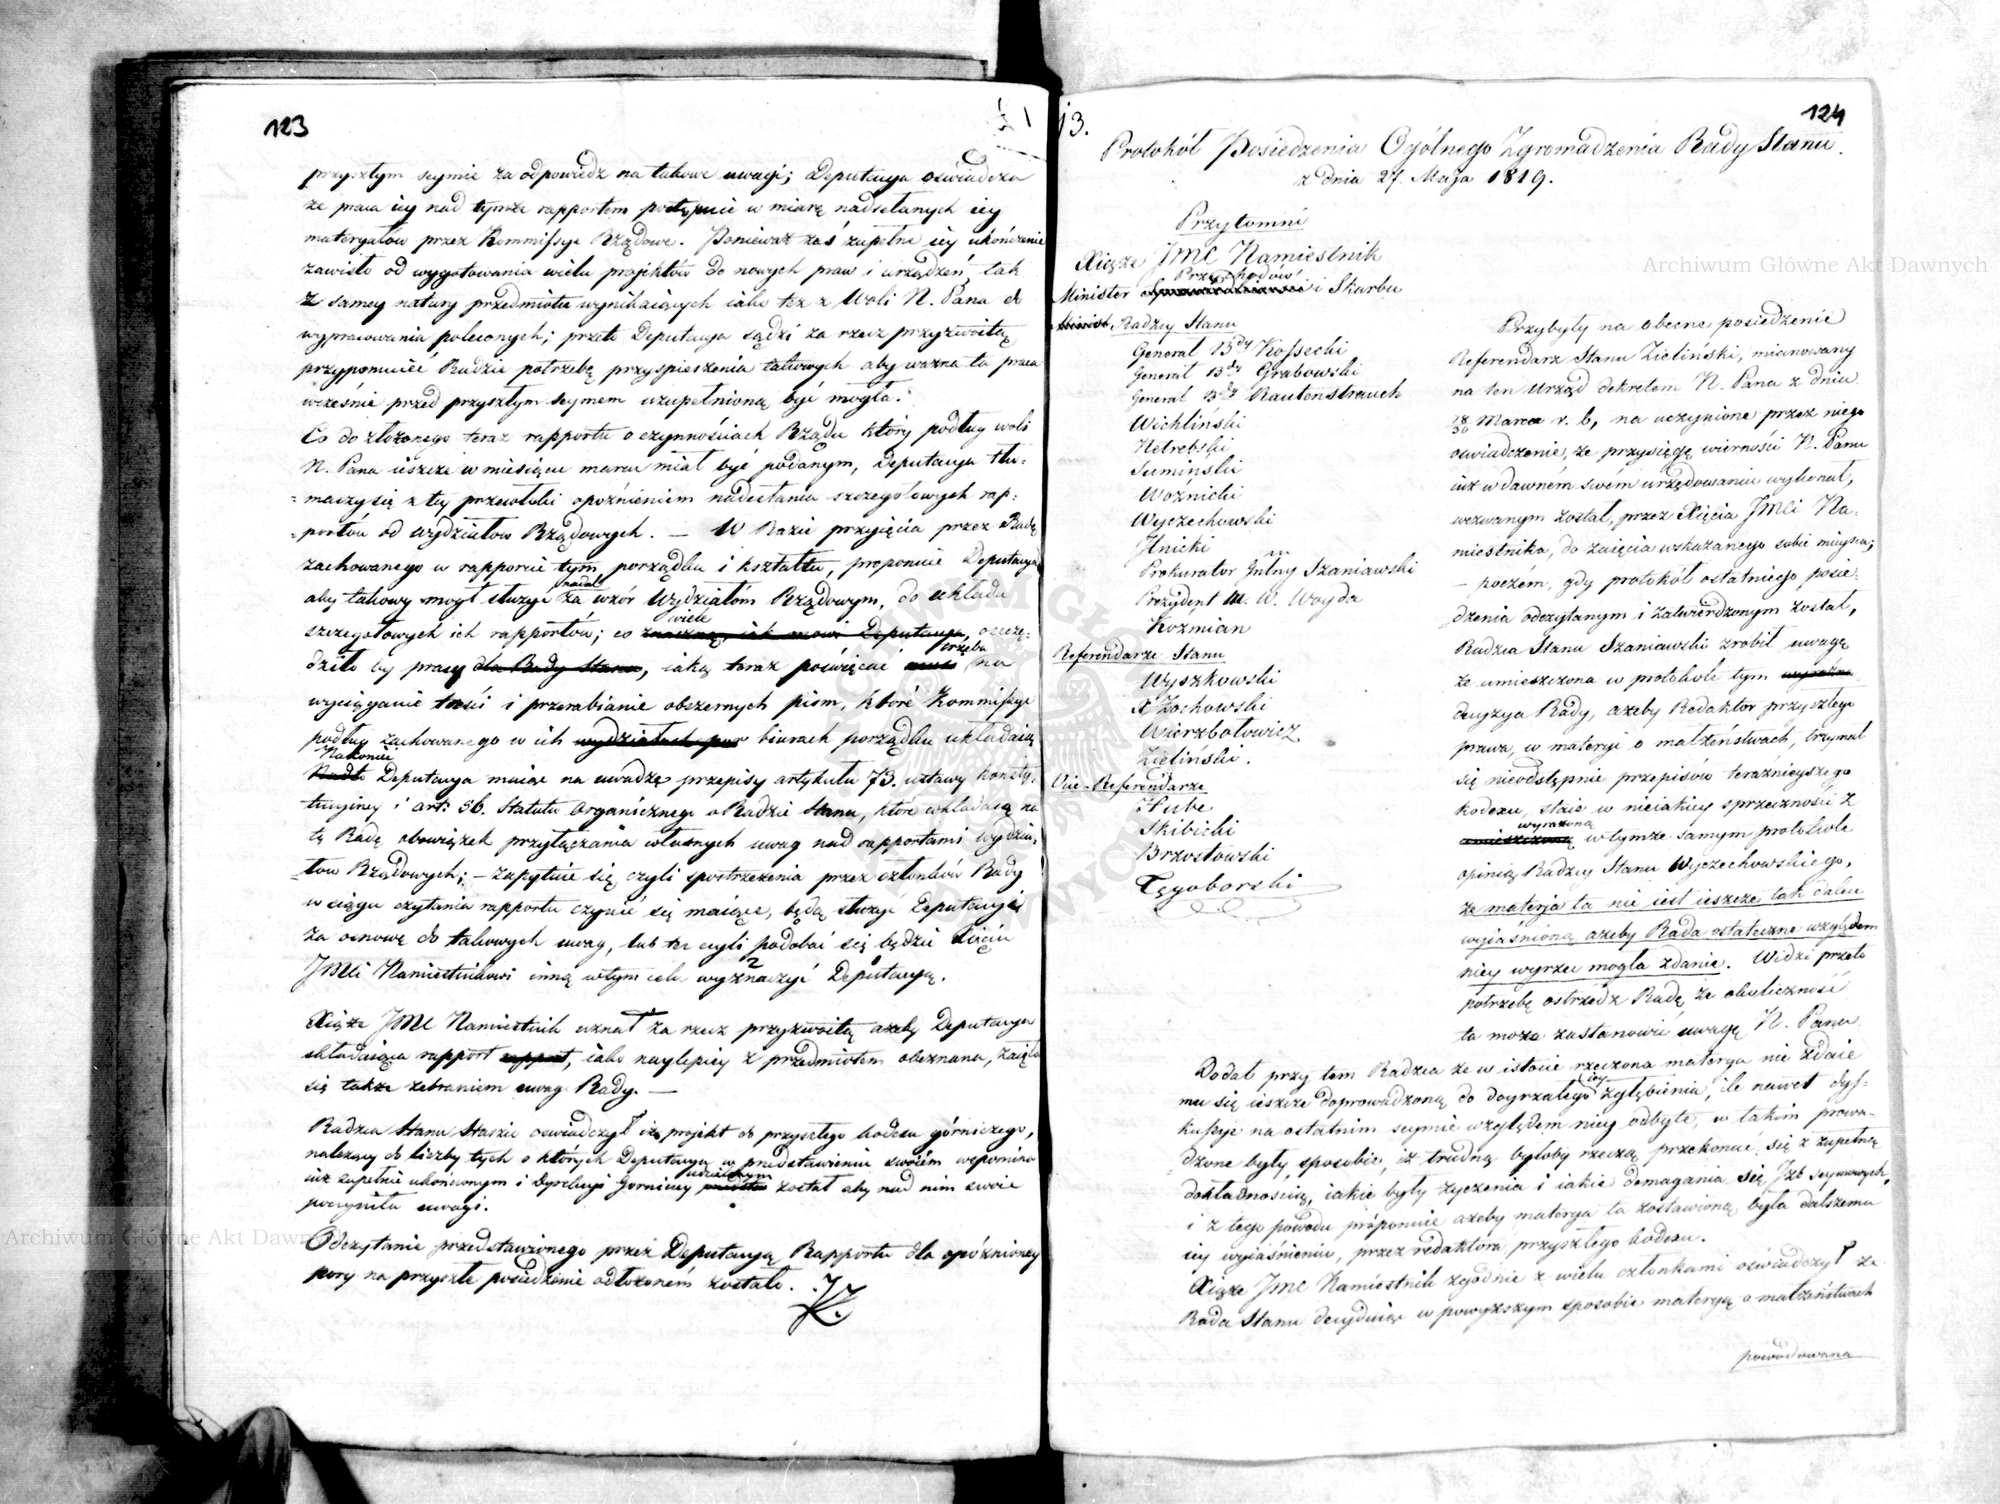 123
przyszłym seymie za odpowiedź na takowe uwagi; Deputacya oświadcza
że praca iey nad tymże rapportem postępuie w miarę nadsełanych iey
materyałów przez Kommissye Rządowe. Ponieważ zaś zupełne iey ukończenie
zawisło od wygotowania wielu projektów do nowych praw i urządzeń, tak
z samey natury przedmiotu wynikaiących iako też z Woli N. Pana do
wypracowania poleconych; przeto Deputacya sądzi za rzecz przyzwoitą
przypomnieć Radzie potrzebę przyspieszenia takowych aby ważna ta praca
wcześnie przed przyszłym seymem uzupełnioną być mogła.
Co do złożonego teraz rapportu o czynnościach Rządu który podług woli
N. Pana ieszcze w miesiącu marcu miał być podanym, Deputacya tłu-
maczy się z tey przewłoki opóźnieniem nadesłania szczegółowych rap-
portów od wydziałów Rządowych. — W Razie przyięcia przez Radę
zachowanego w rapporcie tym porządku i kształtu, proponuie Deputacya
nadal
aby takowy mógł służyć za wzór Wydziałom Rządowym, do układu
wiele
szczegółowych ich rapportów; co znaczną iak mówi Deputacya, oszczę-
trzeba
dziło by pracy dla Rady Stanu, iaką teraz poświęcać musi na
wyciąganie treści i przerabianie obszernych pism, które Kommissye
podług zachowanego w ich wydziałach par biurach porządku układaią
Nakoniec
Nadto Deputacya maiąc na uwadze przepisy artykułu 73. ustawy konsty-
tucyiney i art: 36. Statutu Organicznego o Radzie Stanu, które wkładaią na
tę Radę obowiązek przyłączania własnych uwag nad rapportami wydzia-
łów Rządowych; — zapytuie się czyli spostrzeżenia przez członków Rady
w ciągu czytania rapportu czynić się maiące, będą służyć Deputacyi
za osnowę do takowych uwag, lub też czyli podobać się będzie Xięciu
JMCi Namiestnikowi inną w tym celu wyznaczyć Deputacyą.
Xiąże JMC Namiestnik uznał za rzecz przyzwoitą ażeby Deputacya
składaiąca rapport rapport, iako naylepiey z przedmiotem obeznana, zaięła
się także zebraniem uwag Rady. —
Radzca Stanu Staszic oświadczył iż projekt do przyszłego kodexu górniczego,
należący do liczby tych o których Deputacya w przedstawieniu swoiém wspomina
udzielonym
iuż zupełnie ukończonym i Dyrekcyi Górniczey został aby nad nim swoie
poczyniła uwagi.
Odczytanie przedstawionego przez Deputacyą Rapportu dla opóźnioney
pory na przyszłe posiedzenie odłożoném zostało.
13.
124
Protokół Posiedzenia Ogólnego Zgromadzenia Rady Stanu.
z dnia 27. Maja 1819.
Przytomni
Xiąże JMC Namiestnik
Przychodów
Minister i Skarbu
Radzcy Stanu
Generał Bdy Kossecki
Generał Bdy Grabowski
Generał Bdy Rautenstrauch
Wichliński
Netrebski
Sumiński
Woźnicki
Wyczechowski
Jlnicki
Prokurator Jnlny Szaniawski
Prezydent M. W. Woyda
Koźmian
Referendarze Stanu
Wyszkowski
X Zochowski
Wierzbołowicz
Zieliński.
Vice-Referendarze
Hube
Skibicki
Brzostowski
Tęgoborski
Przybyły na obecne posiedzenie
Referendarz Stanu Zieliński, mianowany
na ten urząd dekretem N. Pana z dnia
18/30 Marca r. b., na uczynione przez niego
oświadczenie, że przysięgę wierności N. Panu
iuż w dawném swém urzędowaniu wykonał,
wezwanym został, przez Xięcia JMCi Na-
miestnika, do zaięcia wskazanego sobie mieysca;
— poczém, gdy protokół ostatniego posie-
dzenia odczytanym i zatwierdzonym został,
Radzca Stanu Szaniawski zrobił uwagę
że umieszczona w protokole tym wyraźna
decyzya Rady, ażeby Redaktor przyszłego
prawa, w materyi o małżeństwach, trzymał
się nieodstępnie przepisów teraźnieyszego
kodexu, staie w nieiakiey sprzeczności z
wyrażoną
umieszczoną w tymże samym protokole
opinią Radzcy Stanu Wyczechowskiego,
że materja ta nie iest ieszcze tak dalece
wyiaśnioną ażeby Rada ostateczne względem
niey wyrzec mogła zdanie. Widzi przeto
potrzebę ostrzedz Radę, że okoliczność
ta może zastanowić uwagę N. Pana.
Dodał przy tem Radzca że w istocie rzeczona materya nie zdaie
iey
mu się ieszcze doprowadzoną do doyrzałego zgłębienia, ile nawet dys-
kussye na ostatnim seymie względem niey odbyte, w takim prowa-
dzone były sposobie, iż trudną byłoby rzeczą przekonać się z zupełną
dokładnością, iakie były życzenia i iakie domagania się Jzb Seymowych,
i z tego powodu proponuie ażeby materya ta zostawioną była dalszemu
iey wyiaśnieniu, przez redaktora przyszłego kodexu.
Xiąże JMC Namiestnik zgodnie z wielu członkami oświadczył że
Rada Stanu decyduiąc w powyższym sposobie materyą o małżeństwach
powodowana
Archiwum Główne Akt Dawnych
Archiwum Główne Akt Dawnych